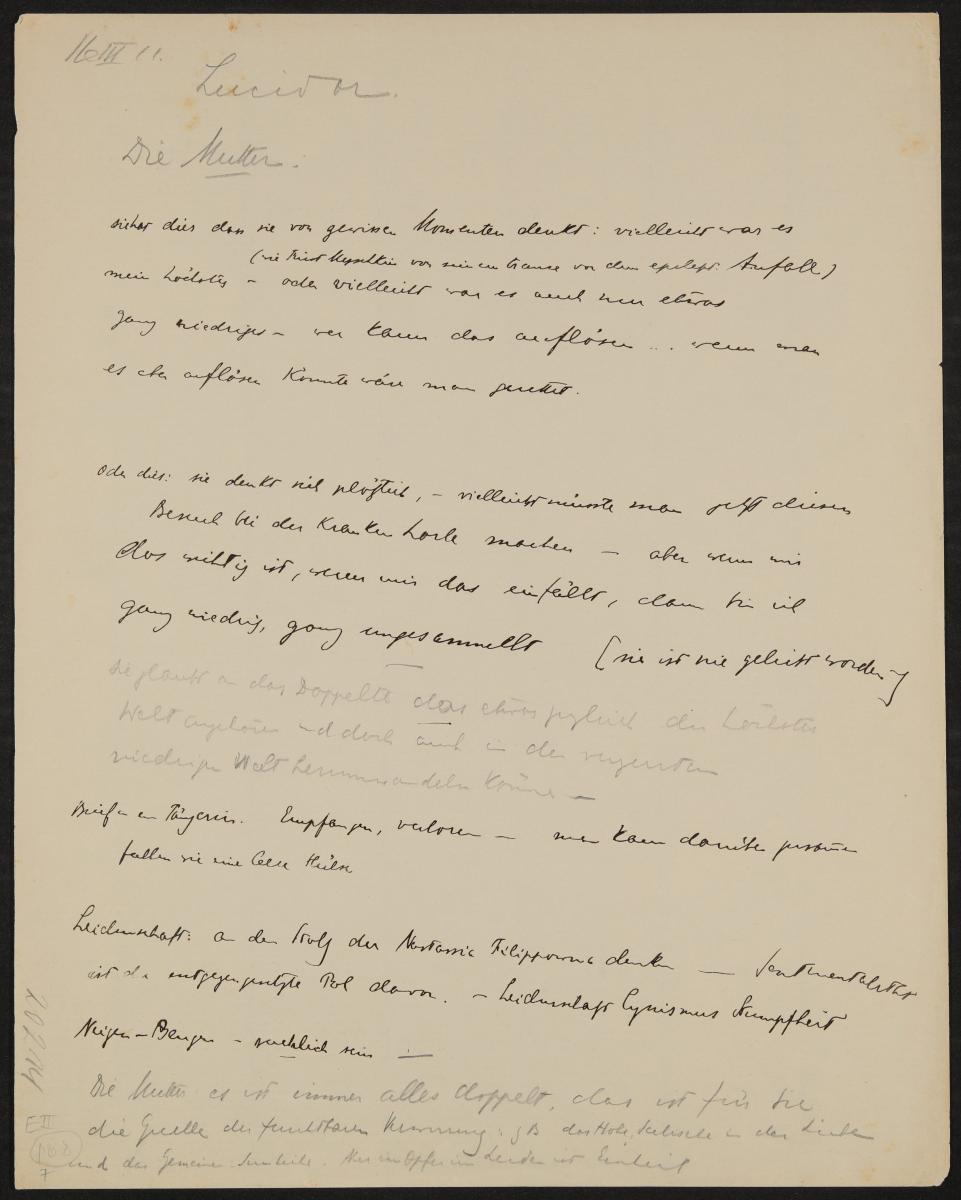 16 III 11.
Lucidor.
Die Mutter:
sicher dies dass sie von gewissen Momenten denkt: vielleicht war es
(wie Fürst Myschkin von seinem trance vor dem epilept. Anfall)
mein höchstes – oder vielleicht war es auch nur etwas
ganz niedriges – wer kann das auflösen ... wenn man
es aber auflösen könnte wäre man gerettet.
Oder dies: sie denkt sich plötzlich, – vielleicht müsste man jetzt diesen
Besuch bei der kranken machen – aber wenn mir
das wichtig ist, wenn mir das einfällt, dann bin ich
ganz niedrig, ganz ungesammelt [sie ist nie geliebt worden –]
sie glaubt an das Doppelte dass etwas zugleich der höchsten
Welt angehören und doch auch in der
niedrigen Welt herumwandeln könne –
Empfangen, verloren – man kann darüber
fallen wie eine leere Hülse
Leidenschaft: an den Stolz der Nastassia Filippowna denken — Sentimentalität
ist der entgegengesetzte Pol davon. – Leidenschaft Cynismus Stumpfheit
Neigen – Beugen – sein —
Die Mutter es ist immer alles doppelt, das ist für sie
die Quelle der furchtbaren Verwirrung: z B das Hohe, Seelische in der Liebe
und das Gemeine Sinnliche. Nur im Opfer im Leiden ist Einheit
20214
E II
188
7